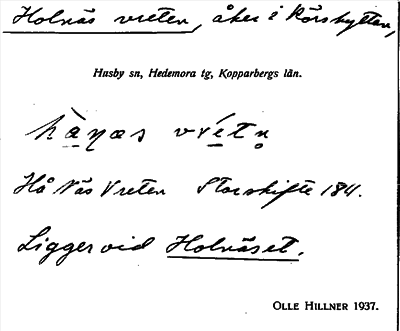 Holnäs vreten, åker i Rörshyttan,
Husby sn, Hedemora tg, Kopparbergs län.
Hå Näs Vreten Storskifte 184.
Ligger vid Holnäset.
OLLE HILLNER 1937.